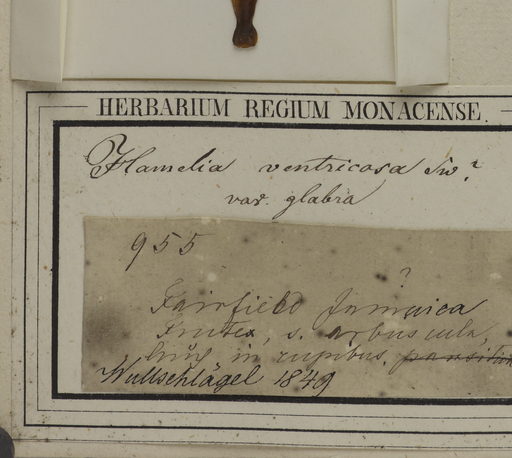 HERBARIUM REGIUM MONACENSE.
Hamelia ventricosa Sw.?
var. glabra
955
?
Fairfield Jamaica
Frutex, s. arbuscula,
in rupibus.
Wullschlägel 1849